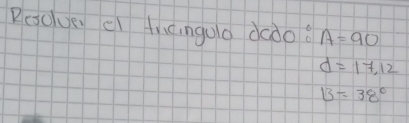 Resolver el triangulo dado: A=90
d=17,12
B=38°